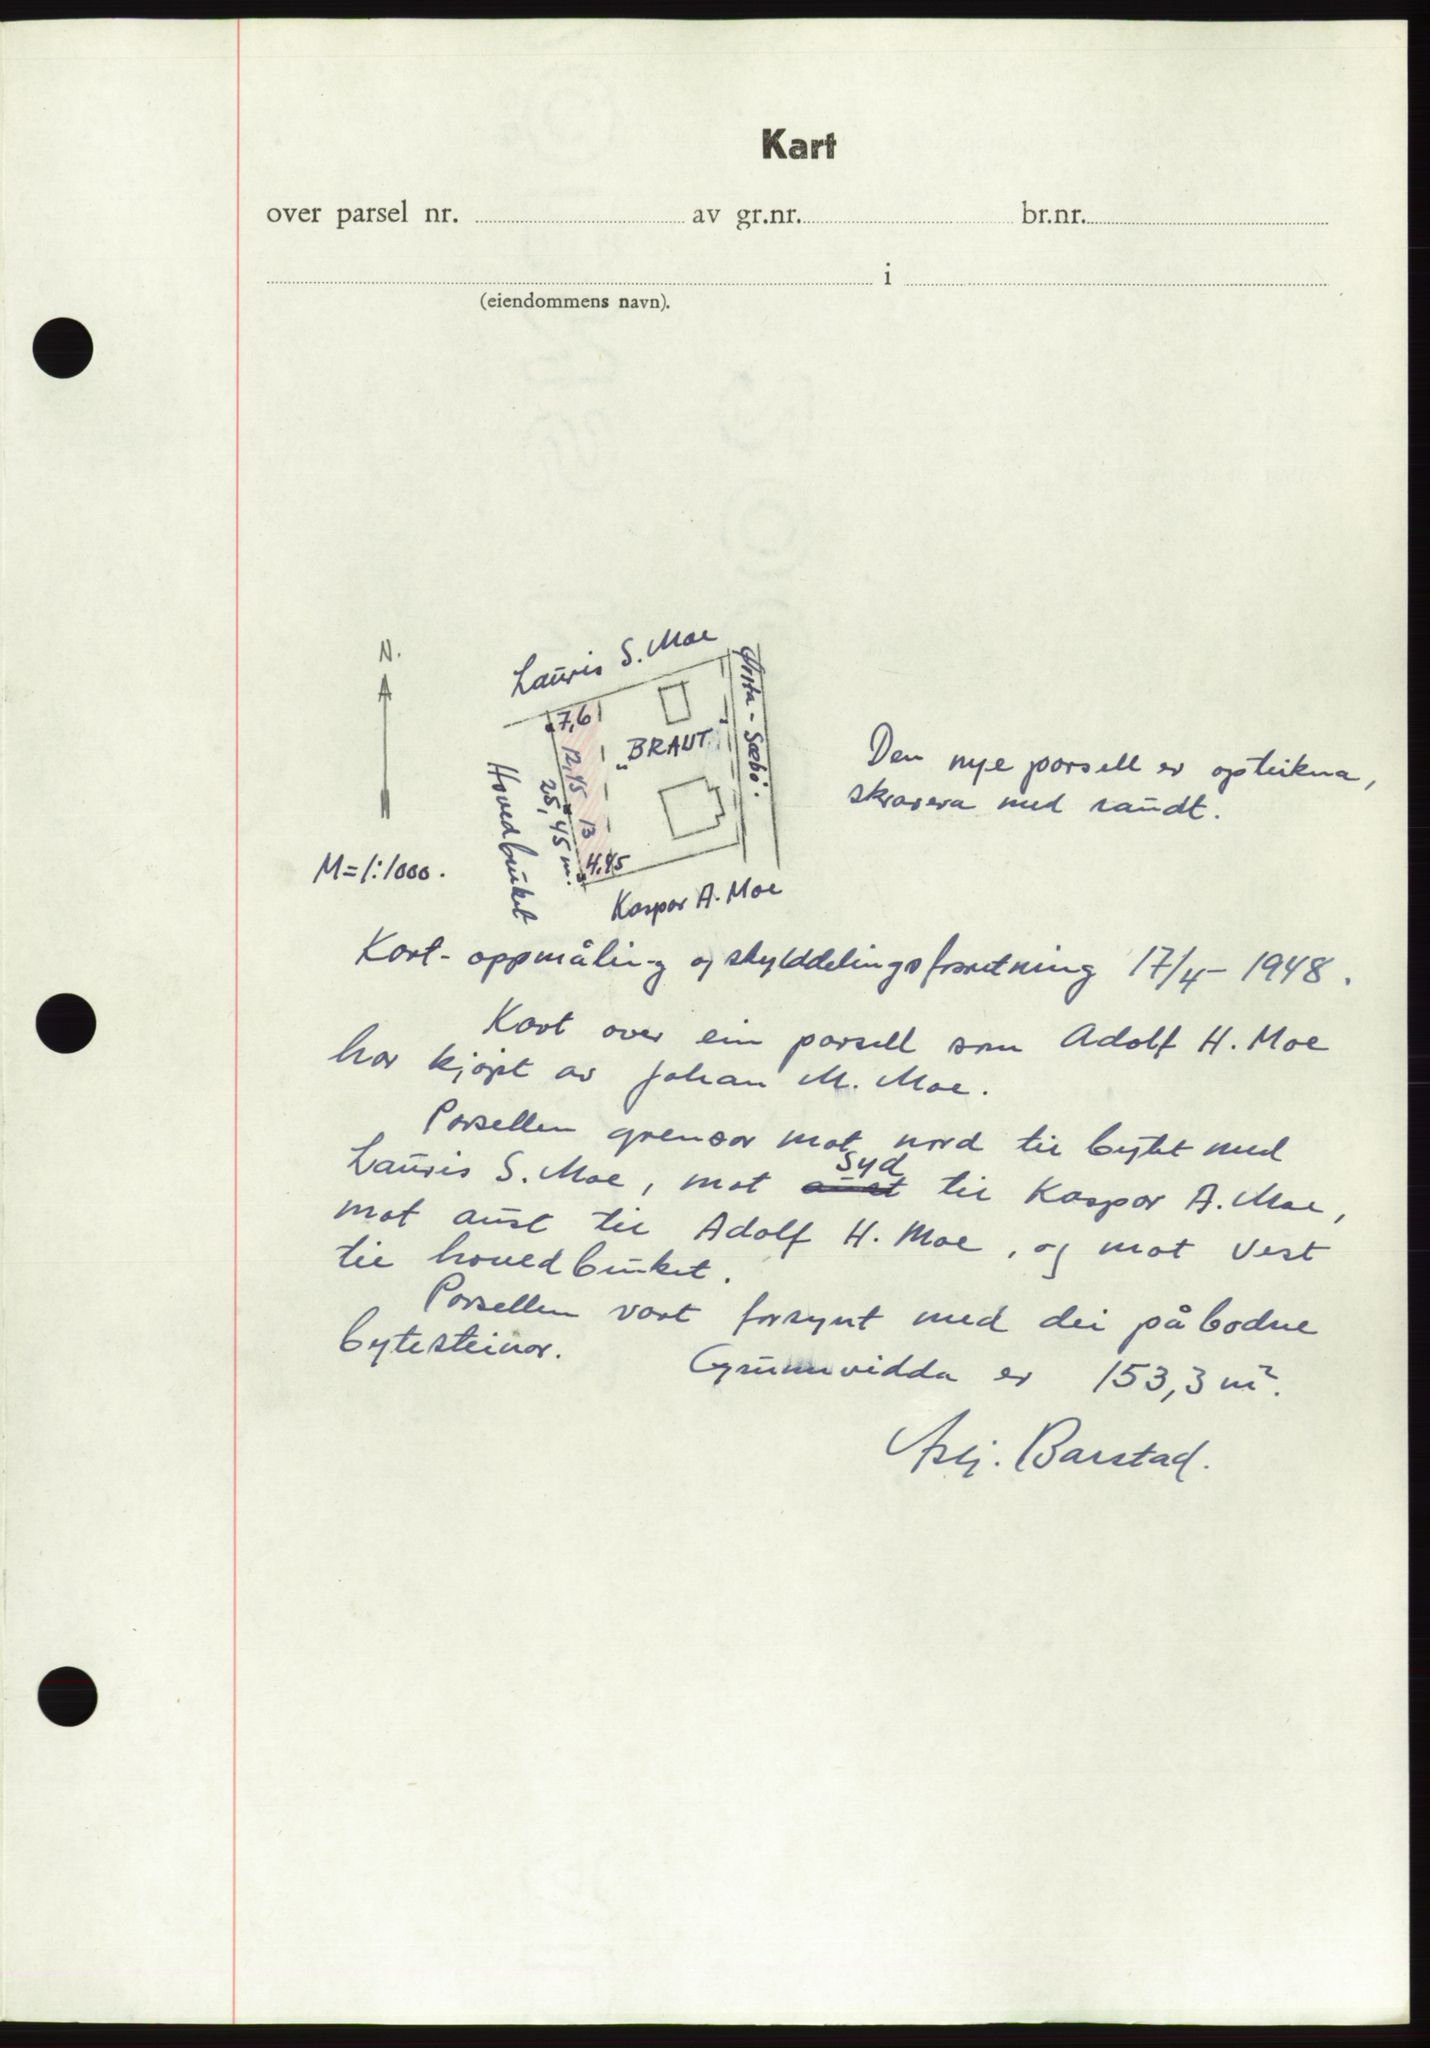 Kart
over parsel nr. av gr.nr. br.nr.
i
(eiendommens navn).
N.
M=1:1000.
Lauris S. Moe
Ørsta - Sæbö.
7,6
12,45
13
4,45
25,45 m.
Hovedbruket
"BRAUT"
Kaspar A. Moe
Den nye parsell er opteikna,
skravera med raudt.
Kart- oppmåling og skylddelingsforretning 17/4- 1948.
Kart over ein parsell som Adolf H. Moe
har kjøpt av Johan M. Moe.
Parsellen grensar mot nord til bytet med
Lauris S. Moe, mot aust syd til Kaspar A. Moe,
mot aust til Adolf H. Moe, og mot vest
til hovedbruket.
Parsellen vart forsynt med dei påbodne
bytesteinar. Grunnvidda er 153,3 m².
Asbj. Barstad.